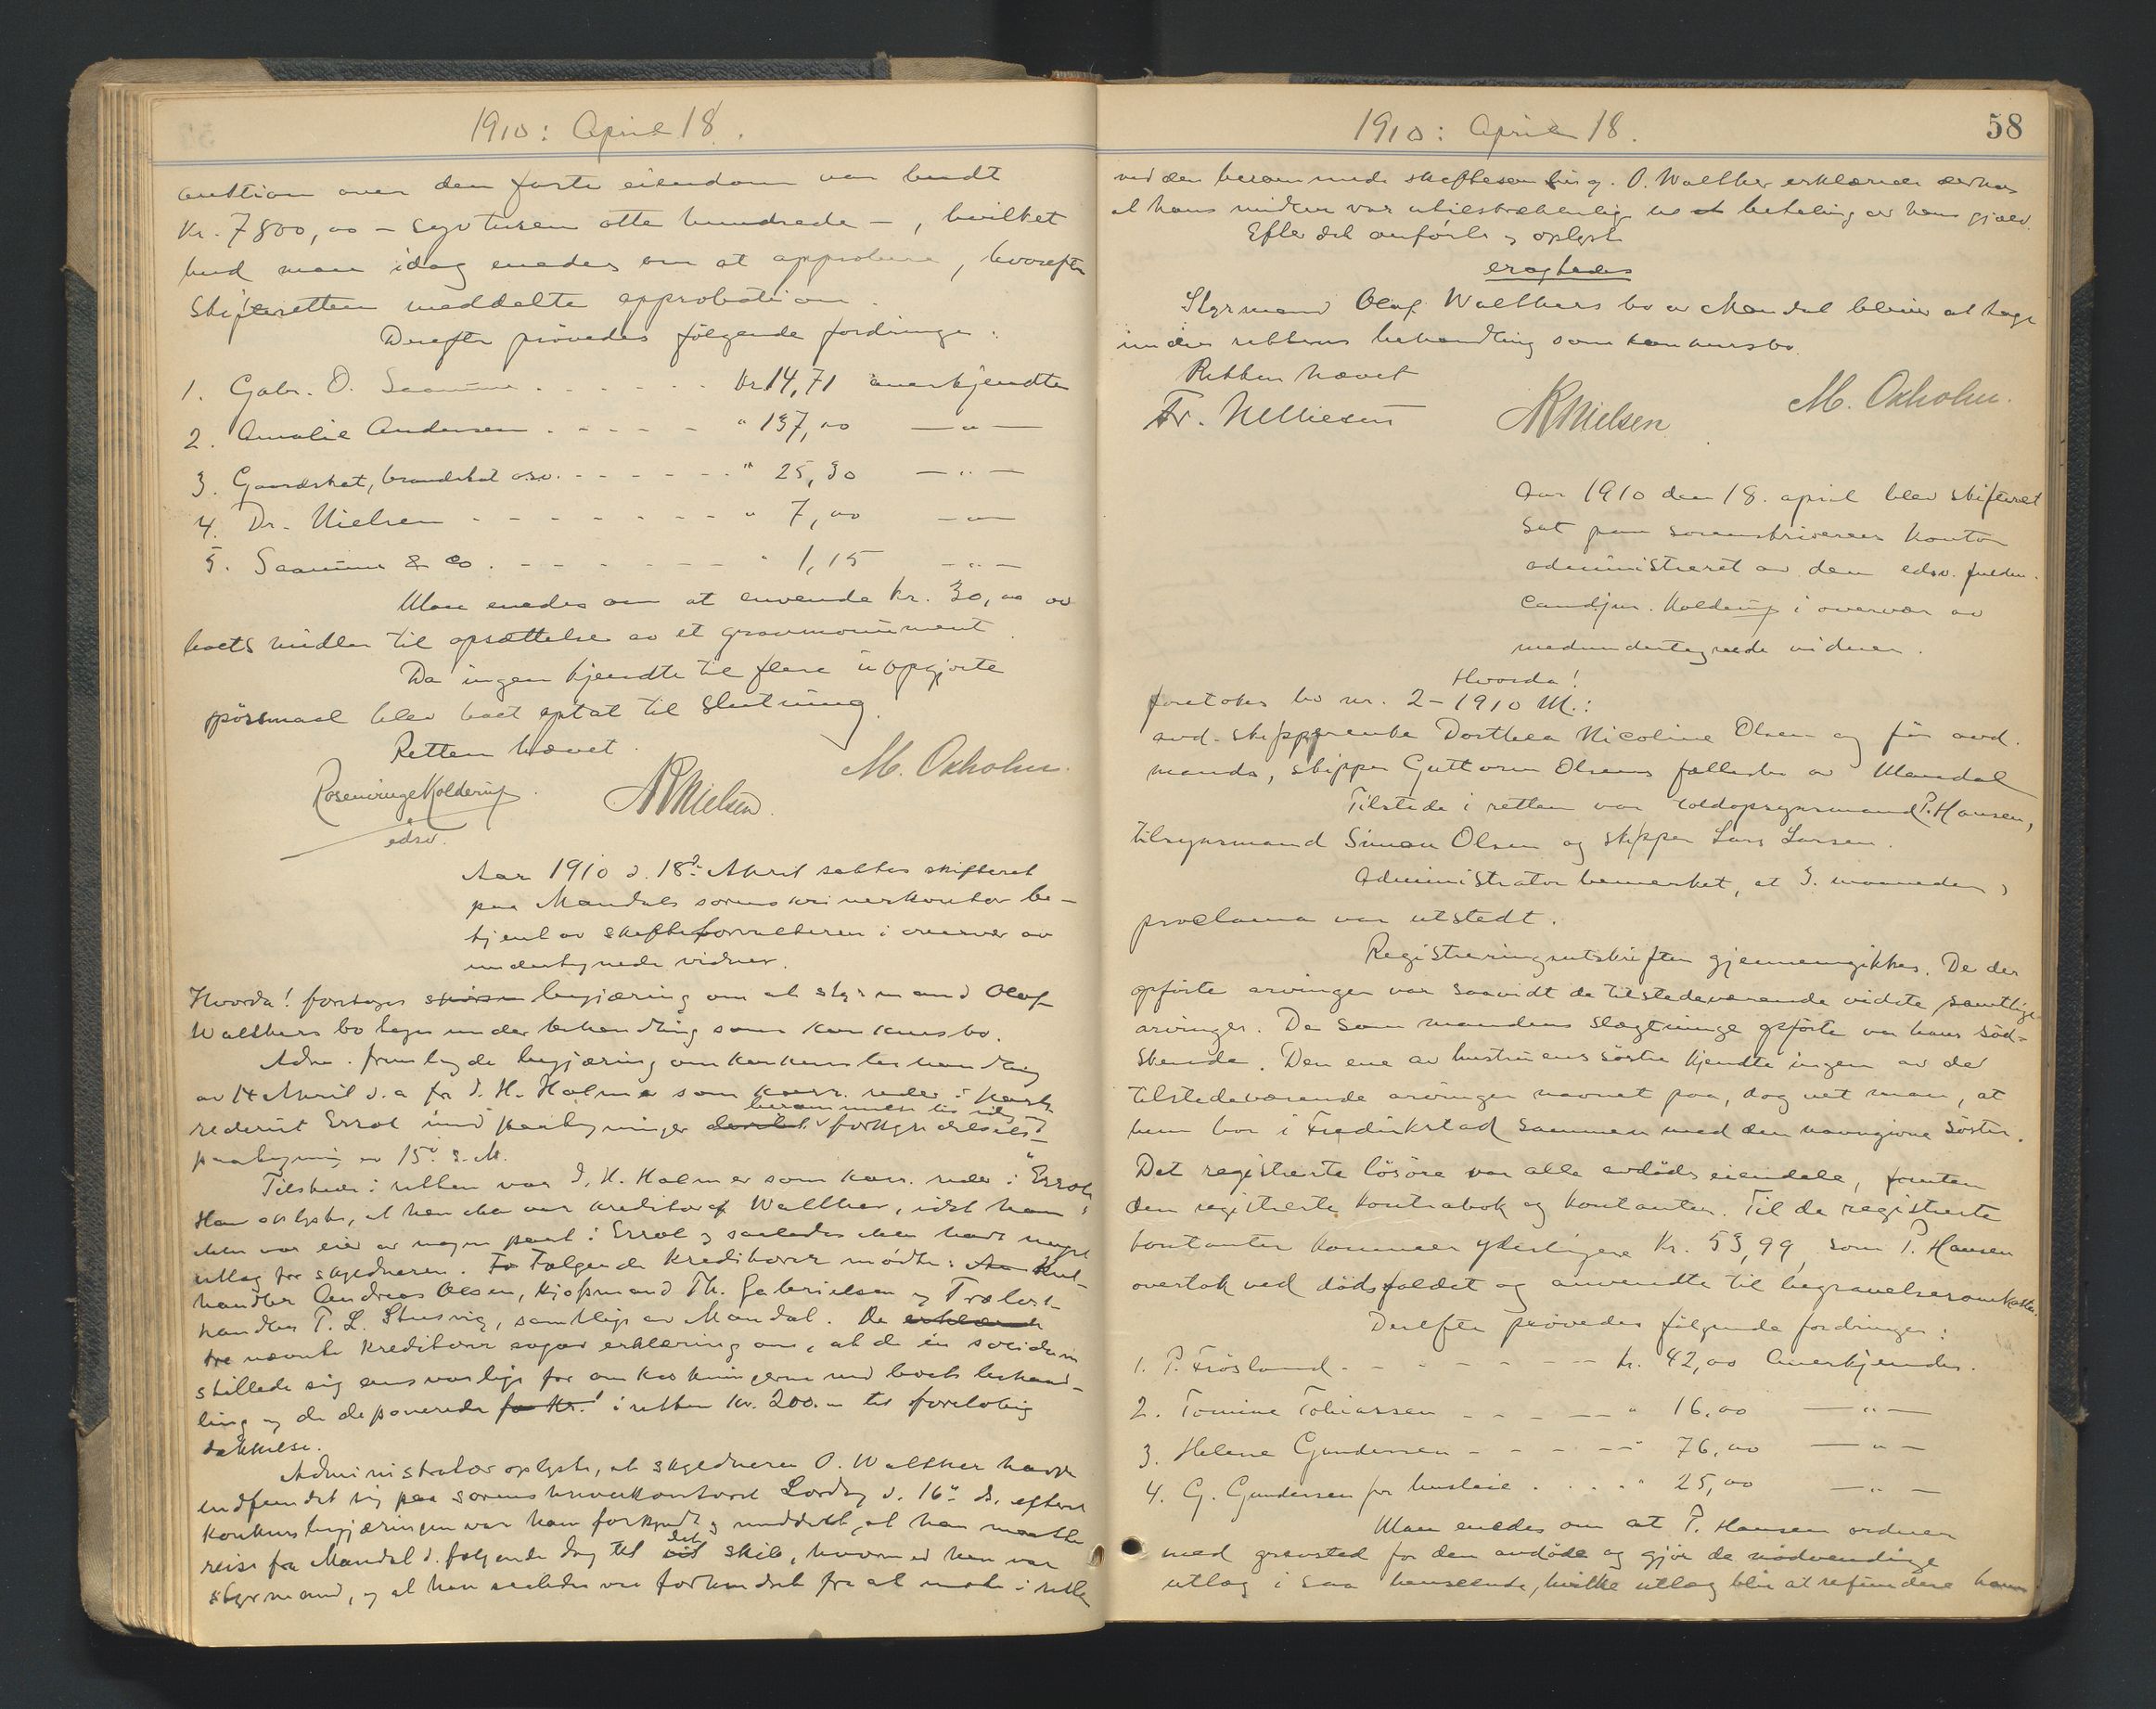 1910: April 18.
auktion over den faste eiendom var budt
Kr. 7800,00 – syvtusen otte hundrede –, hvilket
bud man idag enedes om at approbere, hvorefter
skifteretten meddelte approbation.
Derefter prövedes følgende fordringer:
1. Gabr. O. Saanum . . . . . . Kr. 14,71 anerkjendtes
2. Amalie Andersen . . . . . " 137,00 —"—
3. Gaardskat, brandskat osv. - - - - - - " 25,30 —"—
4. Dr. Nielsen - - - - - - - - " 7,00 —"—
5. Saanum & Co. - - - - - - - " 1,15 —"—
Man enedes om at anvende kr. 30,00 av
boets midler til opsættelse av et gravmonument.
Da ingen kjendte til flere uopgjorte
spörsmaal blev boet optat til slutning.
Retten hævet.
Rosenvinge Kolderup. NNielsen. M. Oxholm.
edsv.
Aar 1910 d. 18de April sattes skifteret
paa Mandals sorenskriverkontor be-
tjent av skifteforvalteren i overvær av
undertegnede vidner.
Hvorda! foretoges begjæring om at styrmand Olaf
Walthers bo tages under behandling som konkursbo.
Adm. fremlagde begjæring om konkursbehandling
av 14 April d. a. fra J. H. Holmer som korr. reder i
rederiet Errol med paategninger berammelse til idag forkyndelses-
paategning av 15de s. M.
Tilstede i retten var J. H. Holmer som korr. reder i "Errol"
Han oplyste, at han ikke var kreditor af Walther, idet han
ikke var eier av nogen part i Errol og saaledes ikke havde noget
utlæg for skyldneren. Følgende kreditorer mødte: Kul-
handler Andreas Olsen, kjøbmand Th. Gabrielsen og Trælast-
handler T. L. Stusvig, samtlige av Mandal. De
tre nævnte kreditorer avgav erklæring om, at de in solidum
stillede sig ansvarlige for omkostningerne med boets behand-
ling og de deponerede i retten kr. 200.– til foreløbig
dækkelse.
Administrator oplyste, at skyldneren O. Walther havde
indfundet sig paa sorenskriverkontoret Lørdag d. 16de ds. efterat
konkursbegjæringen var ham forkyndt og meddelt, at han maatte
reise fra Mandal d. følgende dag til det skib, hvorved han var
styrmand, og at han saaledes var forhindret fra at møde i retten
1910: April 18. 58
ved den berammede skiftesamling. O. Walther erklærede derhos
at hans midler var utilstrækkelig til betaling av hans gjæld.
Efter det anførte og oplyste
eragtedes
Styrmand Olaf Walthers bo av Mandal bliver at tage
under rettens behandling som konkursbo.
Retten hævet
NNielsen. M. Oxholm.
Aar 1910 den 18. april blev skifteret
sat paa sorenskriverens kontor
administreret av den edsv. fuldm.
cand.jur. Kolderup i overvær av
medundertegnede vidner.
Hvorda!
foretokes bo nr. 2 – 1910 M.:
avd. skipperenke Dorthea Nicoline Olsen og för avd.
mands, skipper Guttorm Olsens fællesbo av Mandal
Tilstede i retten var toldopsynsmand P. Hansen,
tilsynsmand Simon Olsen og skipper Lars Larsen.
Administrator bemerket, at 3. maaneders
proclama var utstedt.
Registreringsutskriften gjennemgikkes. De der
opförte arvinger var saavidt de tilstedeværende vidste samtlige
arvinger. De som mandens slægtninge opförte var hans söd-
skende. Den ene av hustruens söstre kjendte ingen av de
tilstedeværende arvinger navnet paa, dog vet man, at
hun bor i Fredrikstad sammen med den navngivne söster.
Det registrerte lösöre var alle avdödes eiendele, foruten
den registrerte kontrabok og kontanter. Til de registrerte
kontanter kommer yderligere Kr. 53,99, som P. Hansen
overtok ved dödsfaldet og anvendte til begravelsesomkostn.
Derefter prövedes følgende fordringer:
1. P. Frösland - - - - - - - - kr. 42,00 Anerkjendes.
2. Tomine Tobiassen - - - - - " 16,00 —"—
3. Helene Gundersen - - - - - " 76,00 —"—
4. G. Gundersen for husleie . . . . " 25,00 —"—
Man enedes om at P. Hansen ordner
med gravsted for den avdöde og gjör de nödvendige
utlæg i saa henseende, hvilke utlæg blir at refundere ham